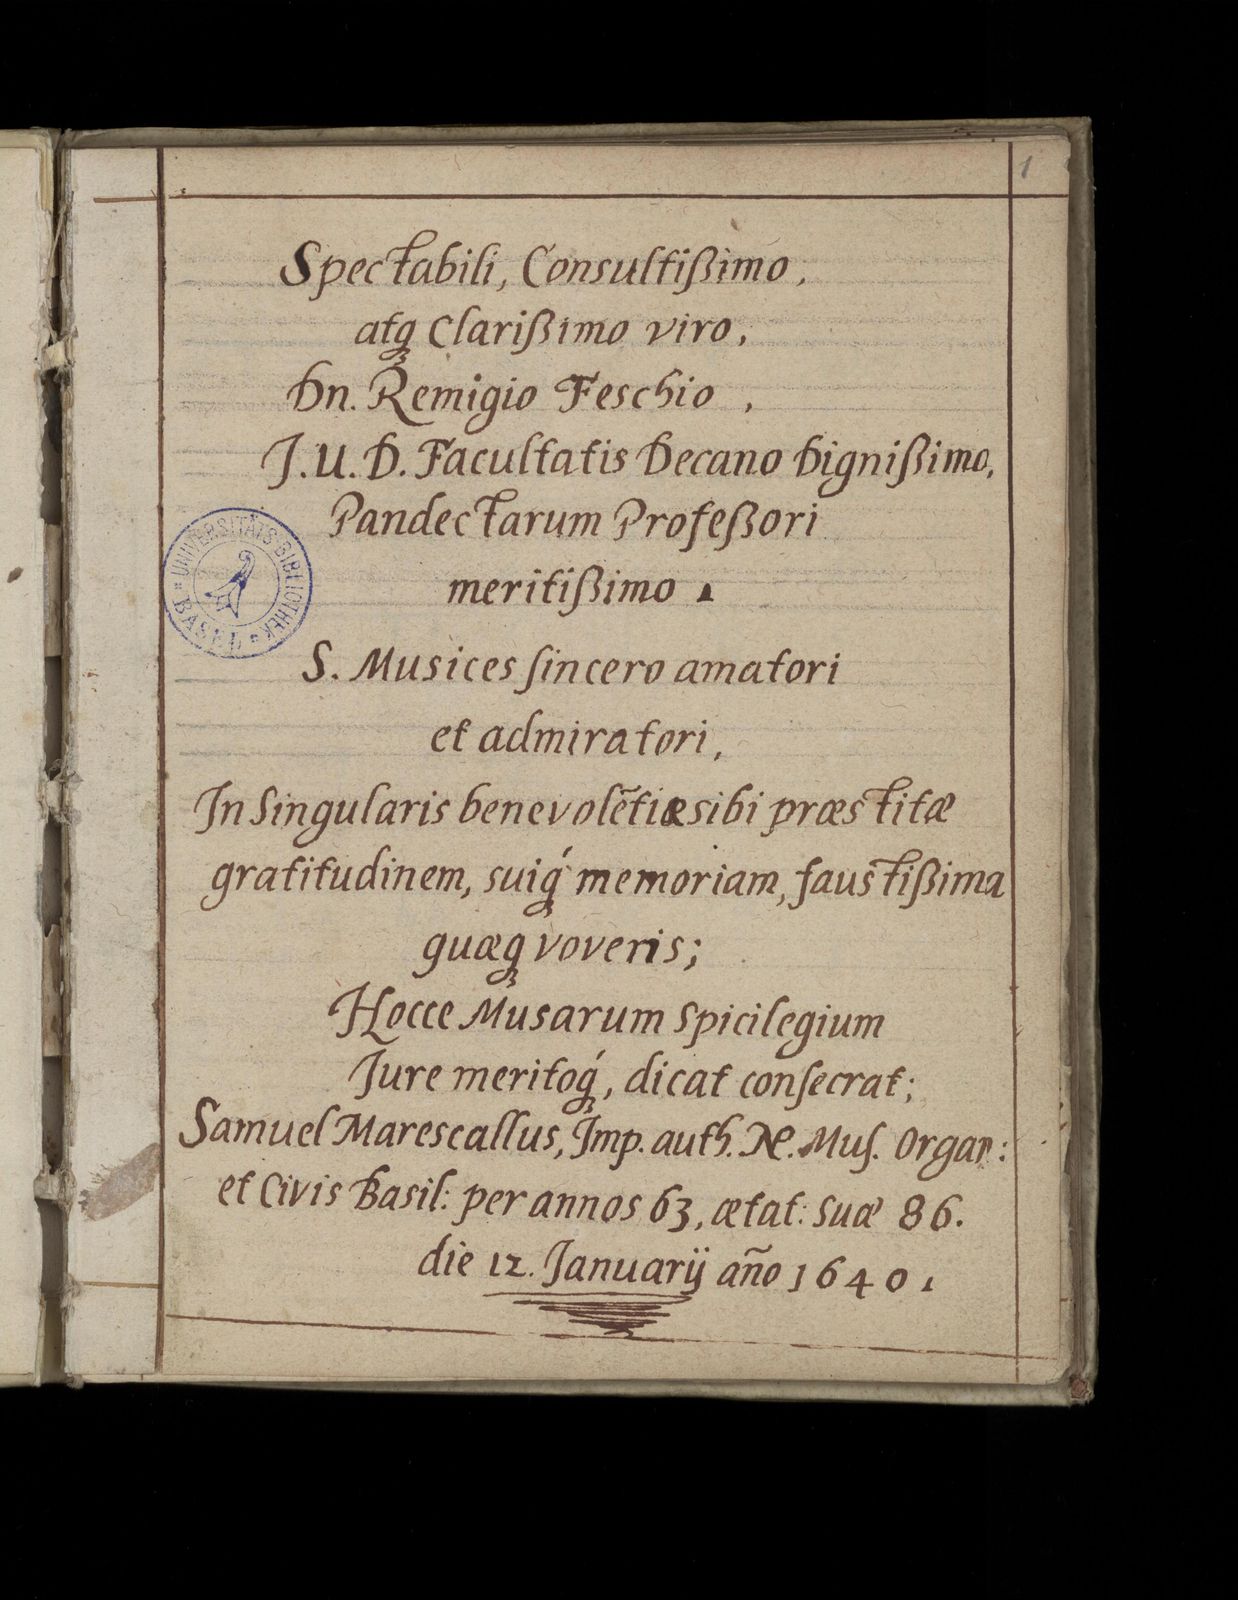 1
Spectabili, Consultißimo,
atq̢ Clarißimo viro,
Dn. Remigio Feschio,
J. U. D. Facultatis Decano Dignißimo,
Pandectarum Profeßori
meritißimo.
UNIVERSITÄTS-BIBLIOTHEK
* BASEL *
S. Musices ſincero amatori
et admiratori,
In Singularis benevolẽtiæ sibi præstitæ
gratitudinem, suiq́ memoriam, faustißima
quæq̢ voveris;
Hocce Musarum Spicilegium
Jure meritoq́, dicat conſecrat;
Samuel Marescallus, Imp. auth. Ne. Muſ. Organ:
et Civis Basil: per annos 63, ætat: suæ 86.
die 12. Januarij año 1640.